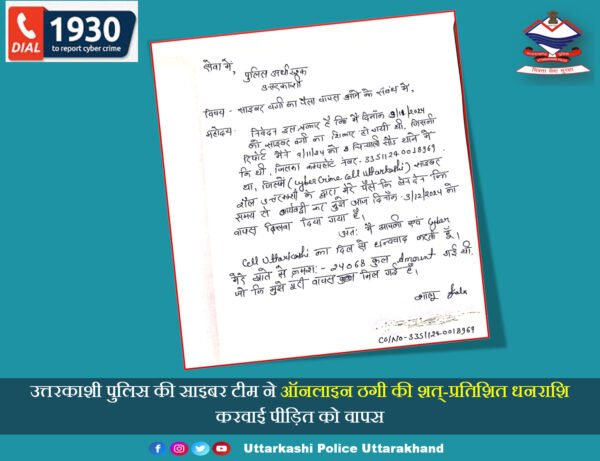 DIAL
1930
to report cyber crime
सेवा में,
पुलिस अधीक्षक
उत्तरकाशी
विषय - साइबर ठगी का पैसा वापस आने के संबंध में,
महोदय, निवेदन इस प्रकार है कि मैं दिनांक
को साइबर ठगी का शिकार हो गयी थी, जिसकी
रिपोर्ट मैने 9/11/24 को थाने में
कि थी, जिसका कम्पलेंट नंबर - 33511240018969
था, जिसमें (Cyber Crime Cell Uttarkashi) साइबर
सैल उत्तरकाशी के द्वारा मेरे पैसे कि
समय से कार्यवाही कर मुझे आज दिनांक - 3/12/2024 को
वापस दिलवा दिया गया है।
अतः मैं आपकी एवं Cyber
Cell Uttarkashi का दिल से धन्यवाद करती हूँ।
मेरे खाते से - 24068 कुल Amount गई थी
जो कि मुझे पूरी वापस मिल गई है।
CO/NO-33511240018969
उत्तरकाशी पुलिस की साइबर टीम ने ऑनलाइन ठगी की शत्-प्रतिशित धनराशि
करवाई पीड़ित को वापस
Uttarkashi Police Uttarakhand